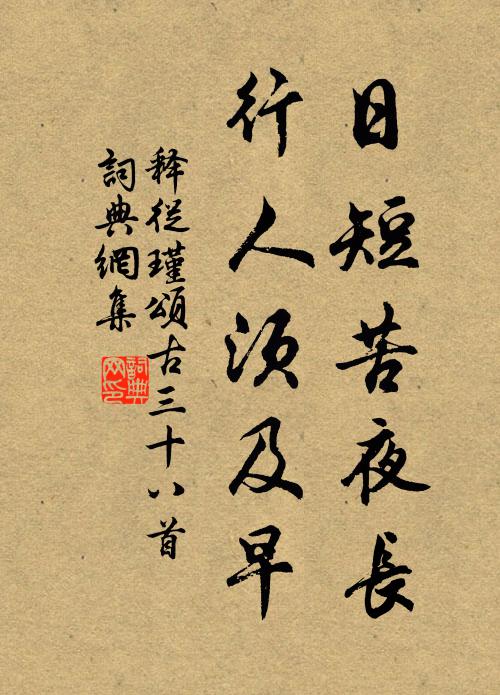 日短苦夜長
行人須及早
释從瑾頌古三十八首
詞典網集
詞典網印